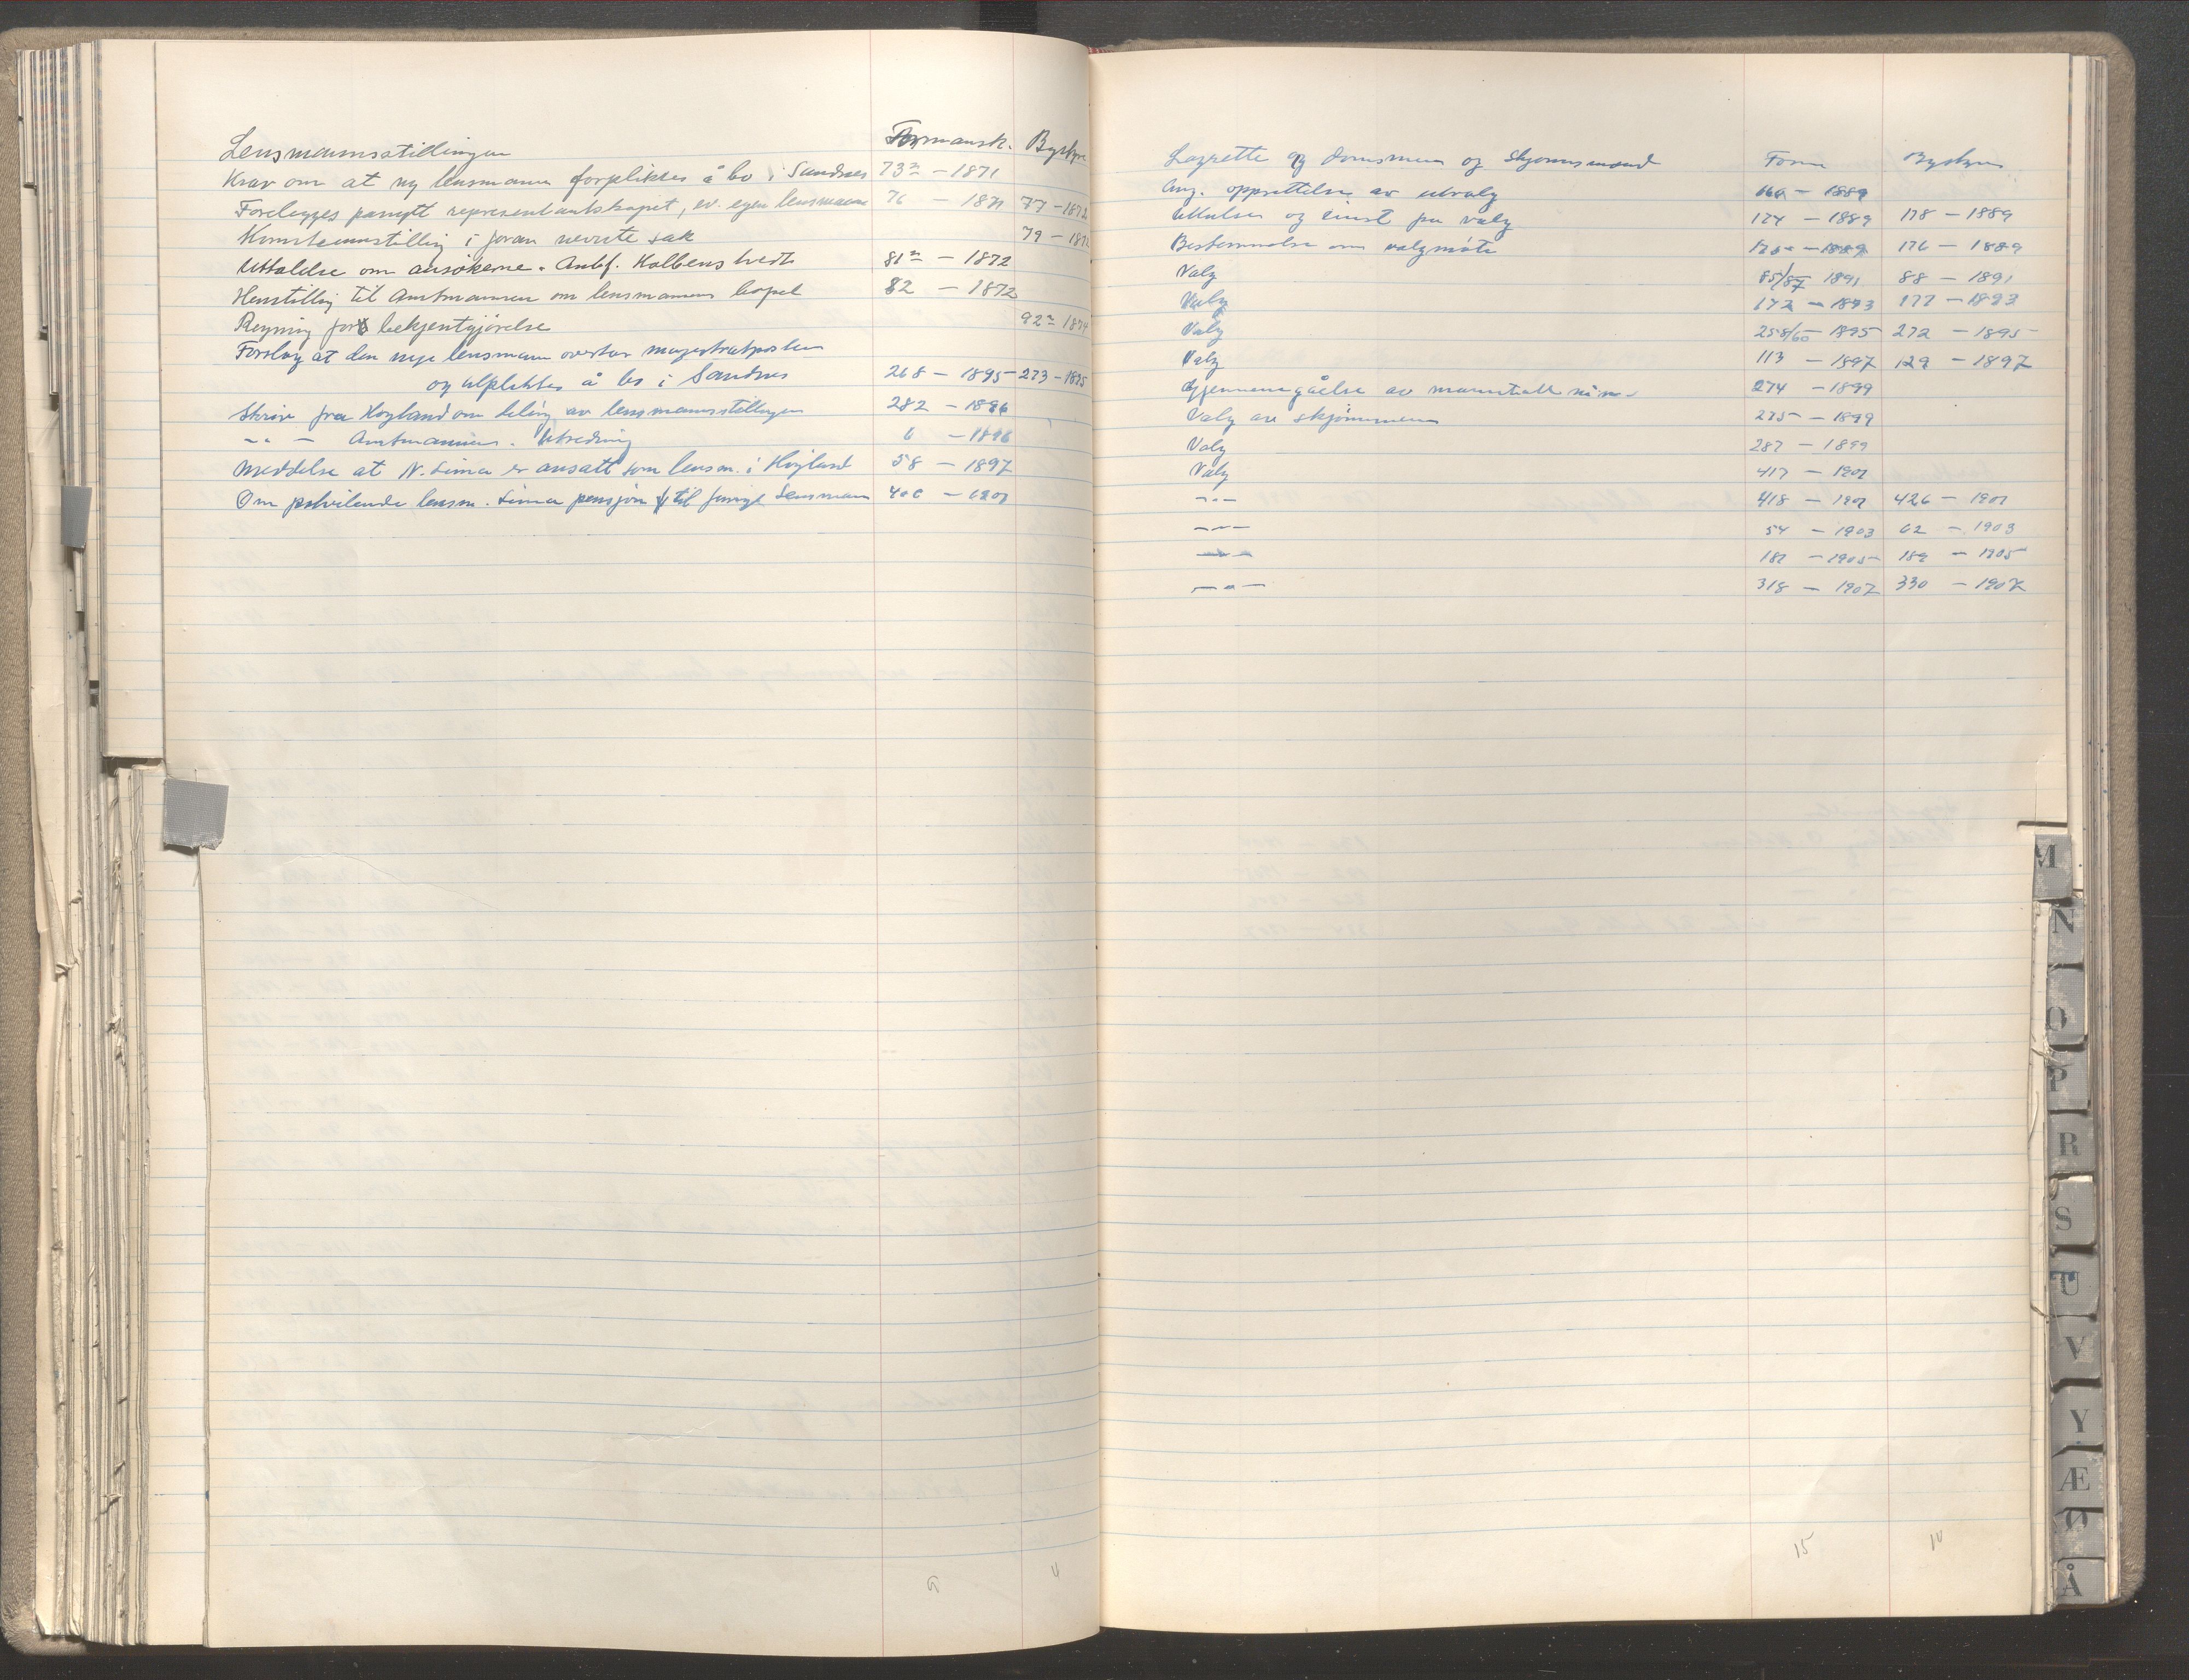 Lensmannsstillingen Formansk. Bystyre
Krav om at ny lensmann forpliktes å bo i Sandnes 73 - 1871
Forelegges panytt representantskapet, ev. egen lensmann 76 - 1871 77 - 1872
Komiteinnstilling i foran nevnte sak 79 - 1872
Uttalelse om ansøkerne. Anbf. 81 - 1872
Henstilling til Amtmannen om lensmannens bopel 82 - 1872
Regning for bekjentgjørelse 92 - 1874
Forslag at den nye lensmann overtar magistratposten
og tilpliktes å bo i Sandnes 268 - 1895 273 - 1895
Skriv fra Høyland om deling av lensmannsstillingen 282 - 1896
-"- Amtmannen. Utredning 6 - 1896
Meddelse at N. Lima er ansatt som lensm. i Høyland 58 - 1897
Om lensm. Lima pensjon til Lensmann 400 - 1901
9 4
Lagrette og domsmenn og skjønnsmænd Form Bystyre
Ang. opprettelse av utvalg 169 - 1889
Uttalelse og på valg 174 - 1889 178 - 1889
Bestemmelse om valgmøte 175 - 1889 176 - 1889
Valg 85/87 1891 88 - 1891
Valg 172 - 1893 177 - 1893
Valg 258/60 - 1895 272 - 1895
Valg 113 - 1897 129 - 1897
Gjennemgåelse av manntall 274 - 1899
Valg av skjønnsmenn 275 - 1899
Valg 287 - 1899
Valg 417 - 1901
-"- 418 - 1901 426 - 1901
-"- 54 - 1903 62 - 1903
-"- 182 - 1905 189 - 1905
-"- 318 - 1907 330 - 1907
15 10
M
N
O
P
R
S
U
V
Y
Æ
Ø
Å